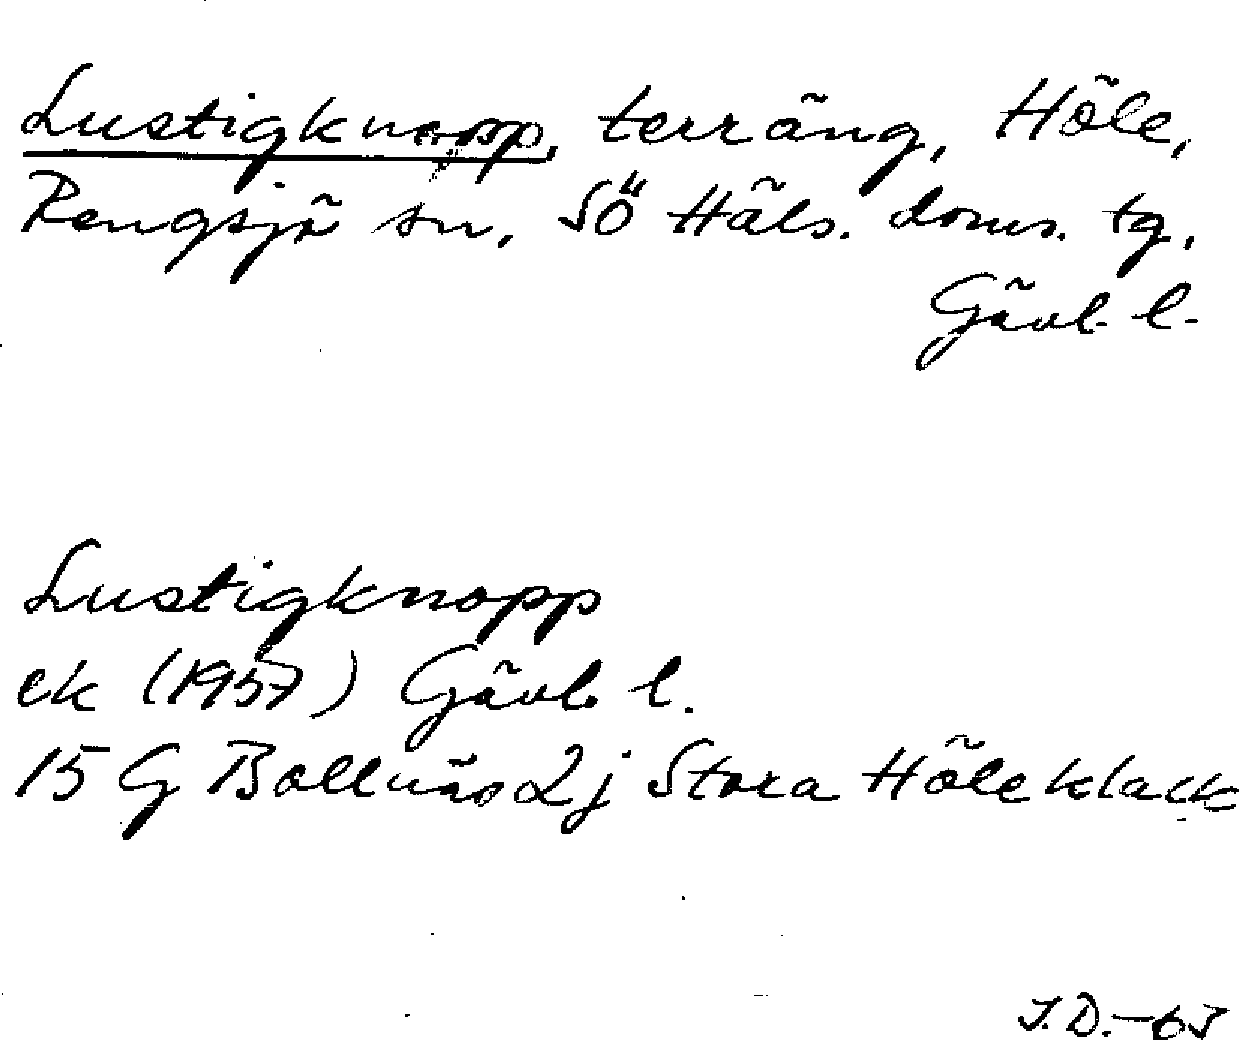 Lustigknopp, terräng, Höle,
Rengsjö sn, SÖ Häls. doms. tg,
Gävl. l.
Lustigknopp
ek (1957) Gävl. l.
15 G Bollnäs 2j Stora Höleklack
J.D.-65